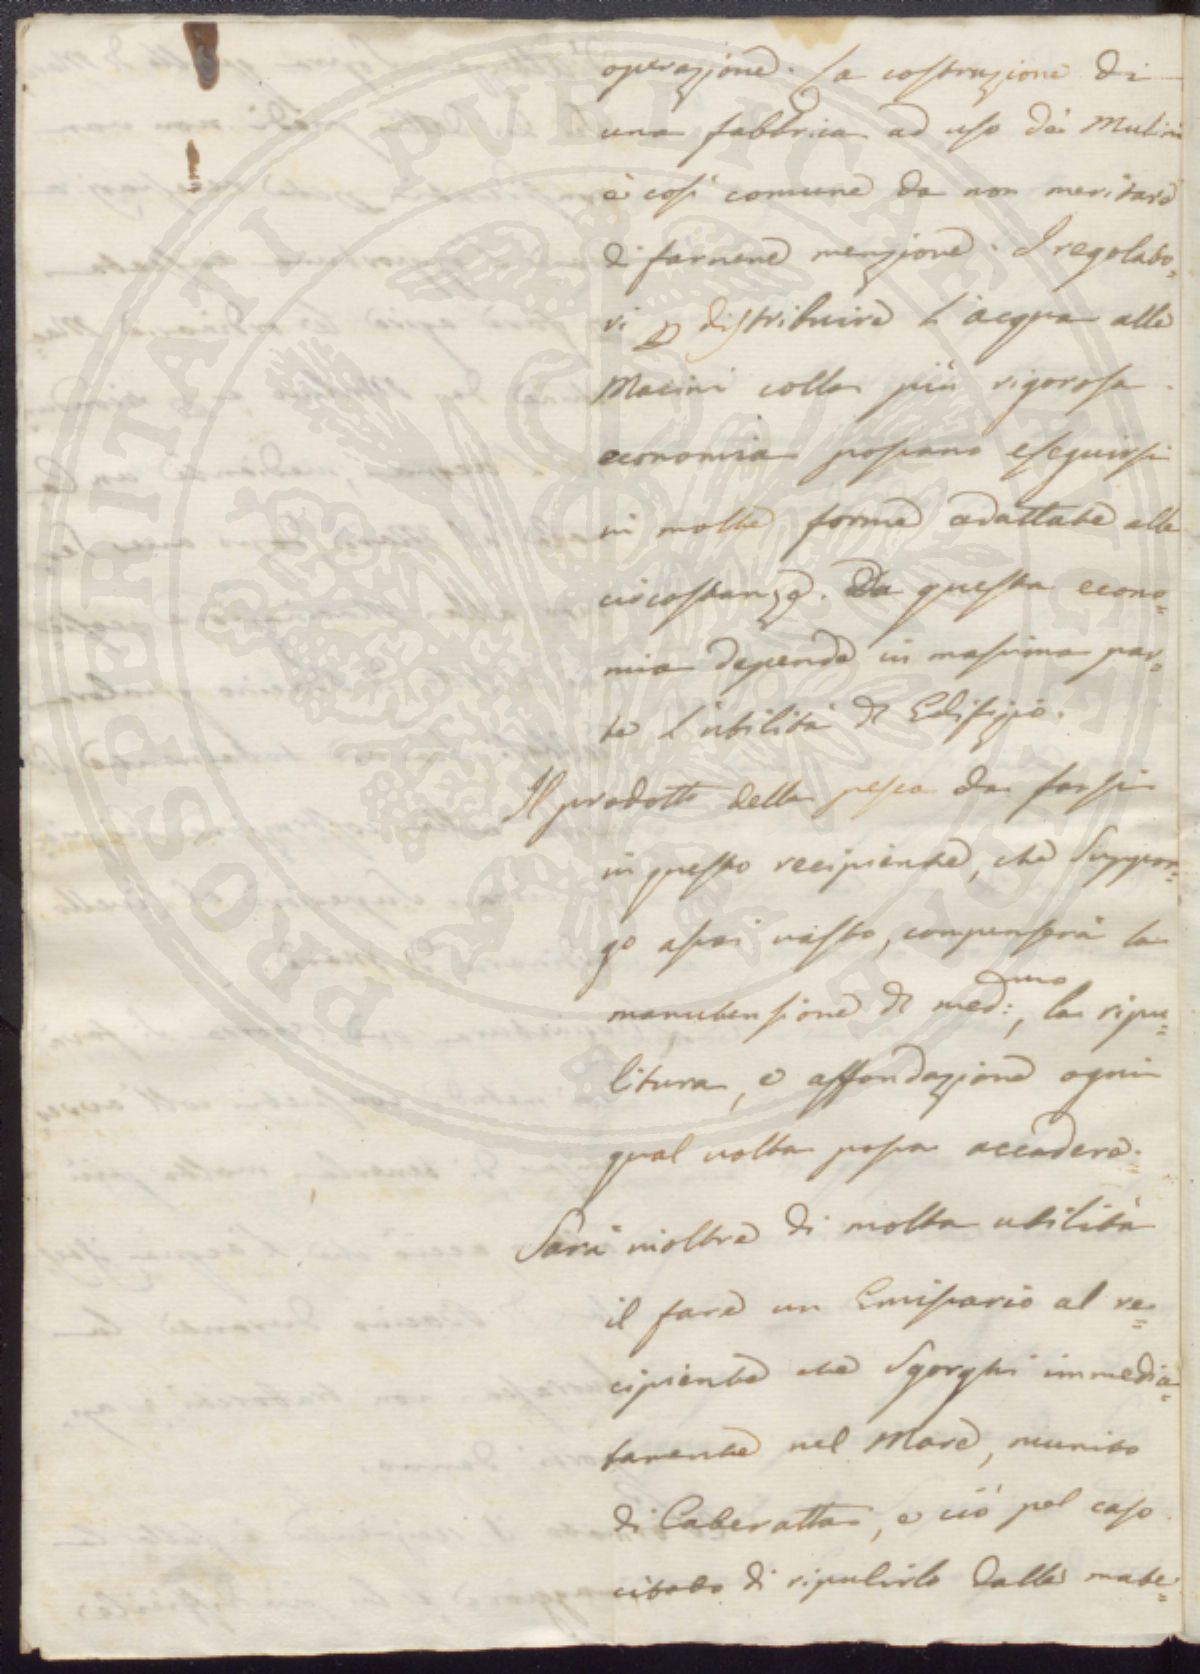 operazione. La costruzione di
una fabbrica ad uso dei Mulini
è così comune da non meritare
di farnene menzione. I regolato=
ri p distribuire l'acqua alle
Macini colla più rigorosa
economia possano eseguirsi
in molte forme adattate alle
circostanze. Da questa econo=
mia depende in massima par=
te l'utilità di Edifizio.
Il prodotto della pesca da farsi
in questo recipiente, che suppon=
go assai vasto, compenserà la
manutensione di med:mo, la ripu=
litura, e affondazione ogni
qual volta possa accadere.
Sarà inoltre di molta utilità
il fare un Emissario al re=
cipiente che sgorghi immedia=
tamente nel Mare, munito
di Cateratta, e ciò pel caso
citato di ripulirlo dalle mate=
PROSPERITATI PVBLICAE AVGENDAE